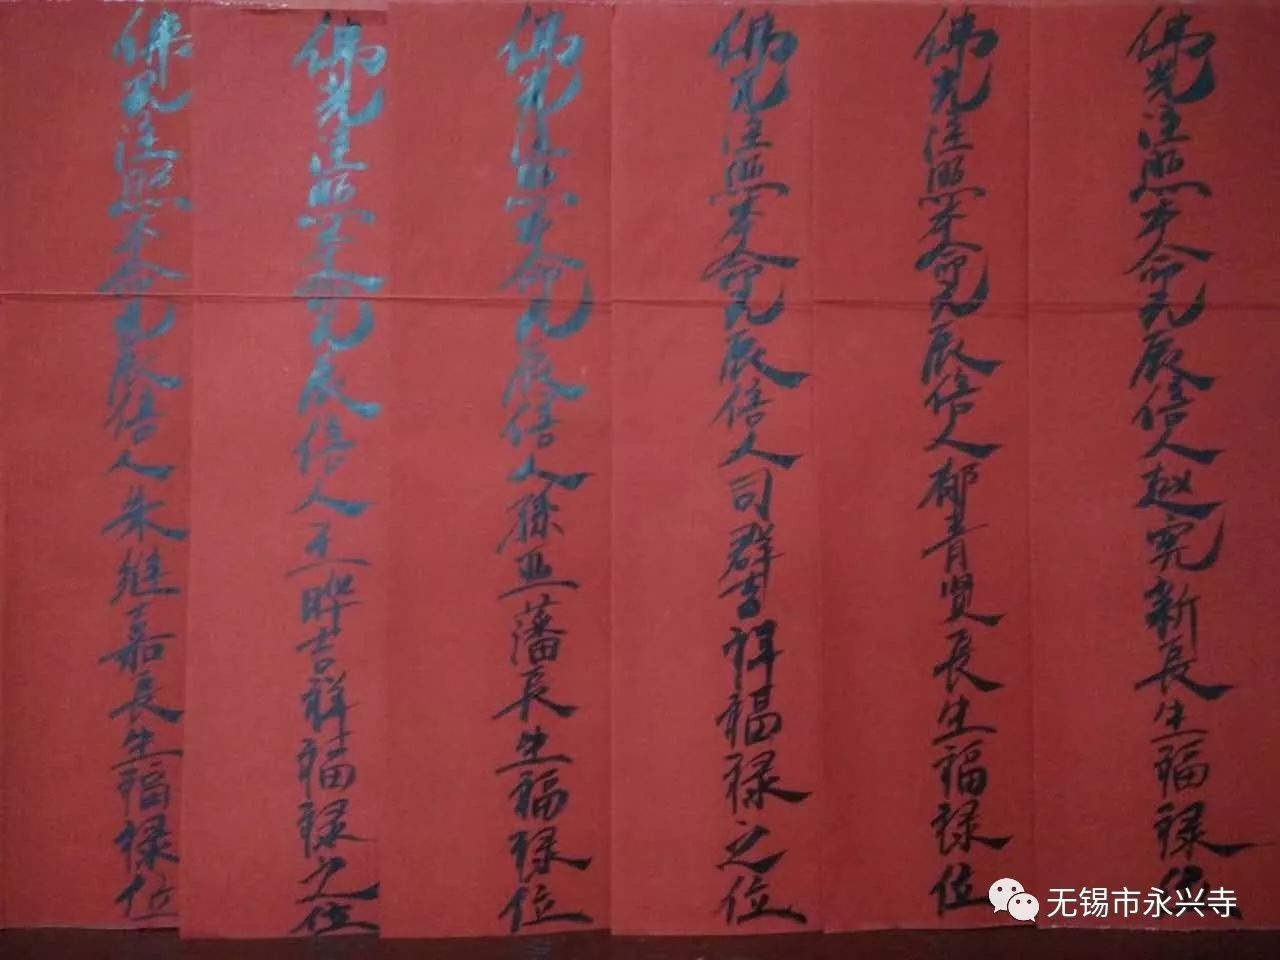 佛光注照本命元辰信人赵宪新長生福禄位
佛光注照本命元辰信人郁青贤長生福禄位
佛光注照本命元辰信人司群吉祥福禄之位
佛光注照本命元辰信人滕亚藩長生福禄位
佛光注照本命元辰信人王晔吉祥福禄之位
佛光注照本命元辰信人朱继嘉長生福禄位
无锡市永兴寺